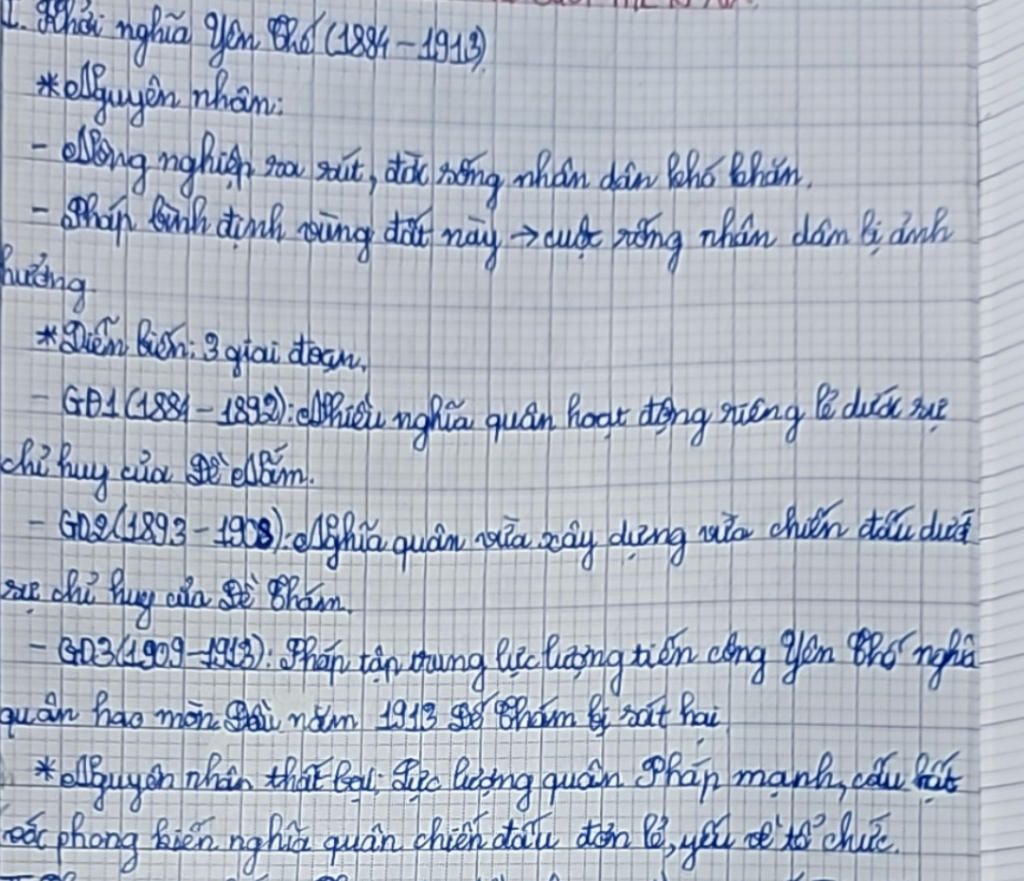 I. Khởi nghĩa Yên Thế (1884-1913)
* Nguyên nhân:
- Nông nghiệp sa sút, đời sống nhân dân khó khăn.
- Pháp bình định vùng đất này → cuộc sống nhân dân bị ảnh
hưởng.
* Diễn biến: 3 giai đoạn.
- GĐ1 (1884-1892): Nhiều nghĩa quân hoạt động riêng lẻ dưới sự
chỉ huy của Đề Nắm.
- GD2 (1893-1908): Nghĩa quân vừa xây dựng vừa chiến đấu dưới
sự chỉ huy của Đề Thám.
- GD3 (1909-1913): Pháp tập trung lực lượng tiến công Yên Thế nghĩa
quân hao mòn. Đầu năm 1913 Đề Thám bị sát hại
* Nguyên nhân thất bại: Lực lượng quân Pháp mạnh, câu kết
phong kiến nghĩa quân chiến đấu đơn lẻ, yếu về tổ chức.